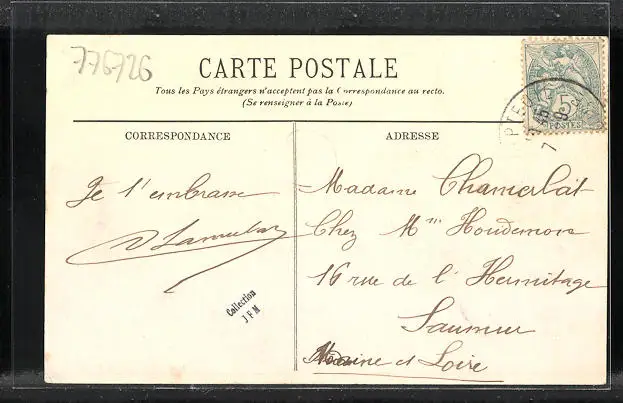 776726
CARTE POSTALE
Tous les Pays étrangers n'acceptent pas la Correspondance au recto.
(Se renseigner à la Poste)
CORRESPONDANCE
ADRESSE
Je t'embrasse
Collection
J F M
Madame Chamerlat
Chez Mme Houdemon
16 rue de l'Hermitage
Saumur
Maine et Loire
5
POSTES